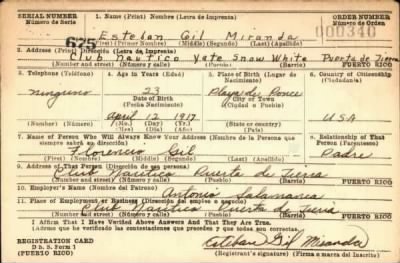 SERIAL NUMBER
Número de Serie
1. Name (Print) Nombre (Letra de Imprenta)
ORDER NUMBER
Número de Orden
625
Esteban Gil Miranda
000340
(First) Primer Nombre (Middle) (Segundo) (Last) (Apellido)
2. Address (Print) Dirección (Letra de Imprenta)
Club nautico Yate Snow White Puerta de Tierra
(Number and street) (Número y calle) (Town) (Pueblo) PUERTO RICO
3. Telephone (Teléfono)
4. Age in Years (Edad)
5. Place of Birth (Lugar de Nacimiento)
6. Country of Citizenship (Ciudadanía)
ninguno
23
Playa de Ponce
Date of Birth
(Fecha Nacimiento)
City or Town
(Ciudad o Pueblo)
April 12 1917
USA
(Number) (Número)
(Mo.) (Day) (Yr.)
(Mes) (Día) (Año)
(State or country)
(Estado o país)
7. Name of Person Who Will Always Know Your Address (Nombre de la Persona que siempre sabrá su dirección)
8. Relationship of That Person (Parentesco)
Florencio Gil
Padre
(First) (Primero) (Middle) (Segundo) (Last) (Apellido)
9. Address of That Person (Dirección de esa persona)
Club Nautico Puerta de Tierra
(Number and street) (Número y calle) (Town) (Pueblo) PUERTO RICO
10. Employer's Name (Nombre del Patrono)
Antonio Salamanca
11. Place of Employment or Business (Dirección del empleo o negocio)
Club Nautico Puerta de Tierra
(Number and street) (Número y calle) (Town) (Pueblo) PUERTO RICO
I Affirm That I Have Verified Above Answers And That They Are True.
Afirmo que he verificado las contestaciones que preceden y que todas son correctas.
REGISTRATION CARD
D. S. S. Form 1
(PUERTO RICO)
Esteban Gil Miranda
(Registrant's signature) (Firma o marca del Inscrito)